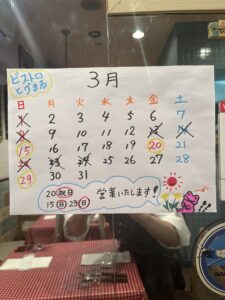 ビストロ
とびまる
3月
日 月 火 水 木 金 土
1 2 3 4 5 6 7
8 9 10 11 12 13 14
15 16 17 18 19 20 21
22 23 24 25 26 27 28
29 30 31
20 祝日
15(日)29(日)
営業いたします!